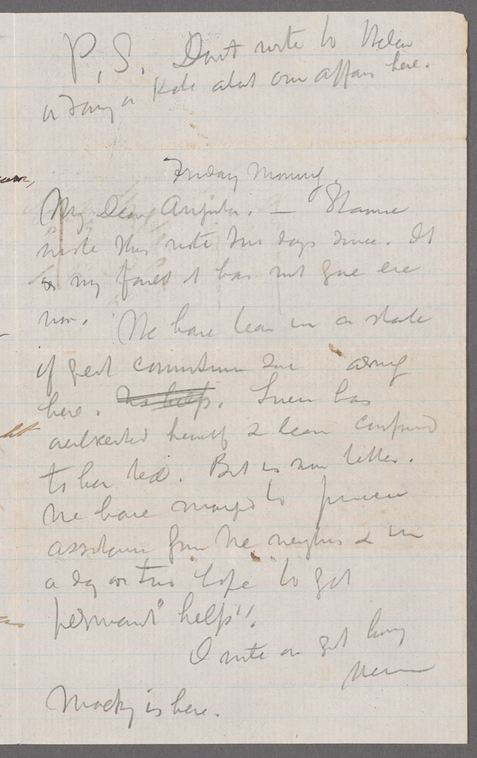 P.S. Don't write to Helen
or Fanny or Kate about our affairs here.
Friday Morning.
My Dear — 
wrote this note two days since. It
is my fault it has not gone ere
now. We have been in a state
of great commotion
here. No help. has
overexerted herself & been confined
to her bed. But is now better.
We have managed to procure
assistance from the neighbors & in
a day or two hope to get
permanent "help".
I write in great hurry
Macky is here.